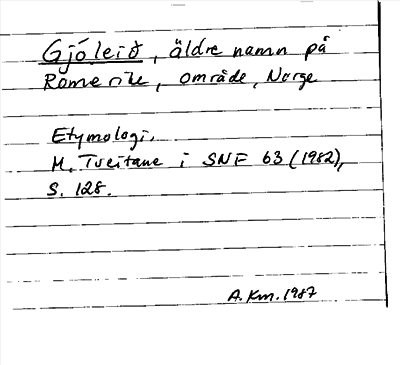 Gjóleið, äldre namn på
Romerike, område, Norge
Etymologi.
M. Tveitane i SNF 63 (1982),
s. 128.
A. Km. 1987